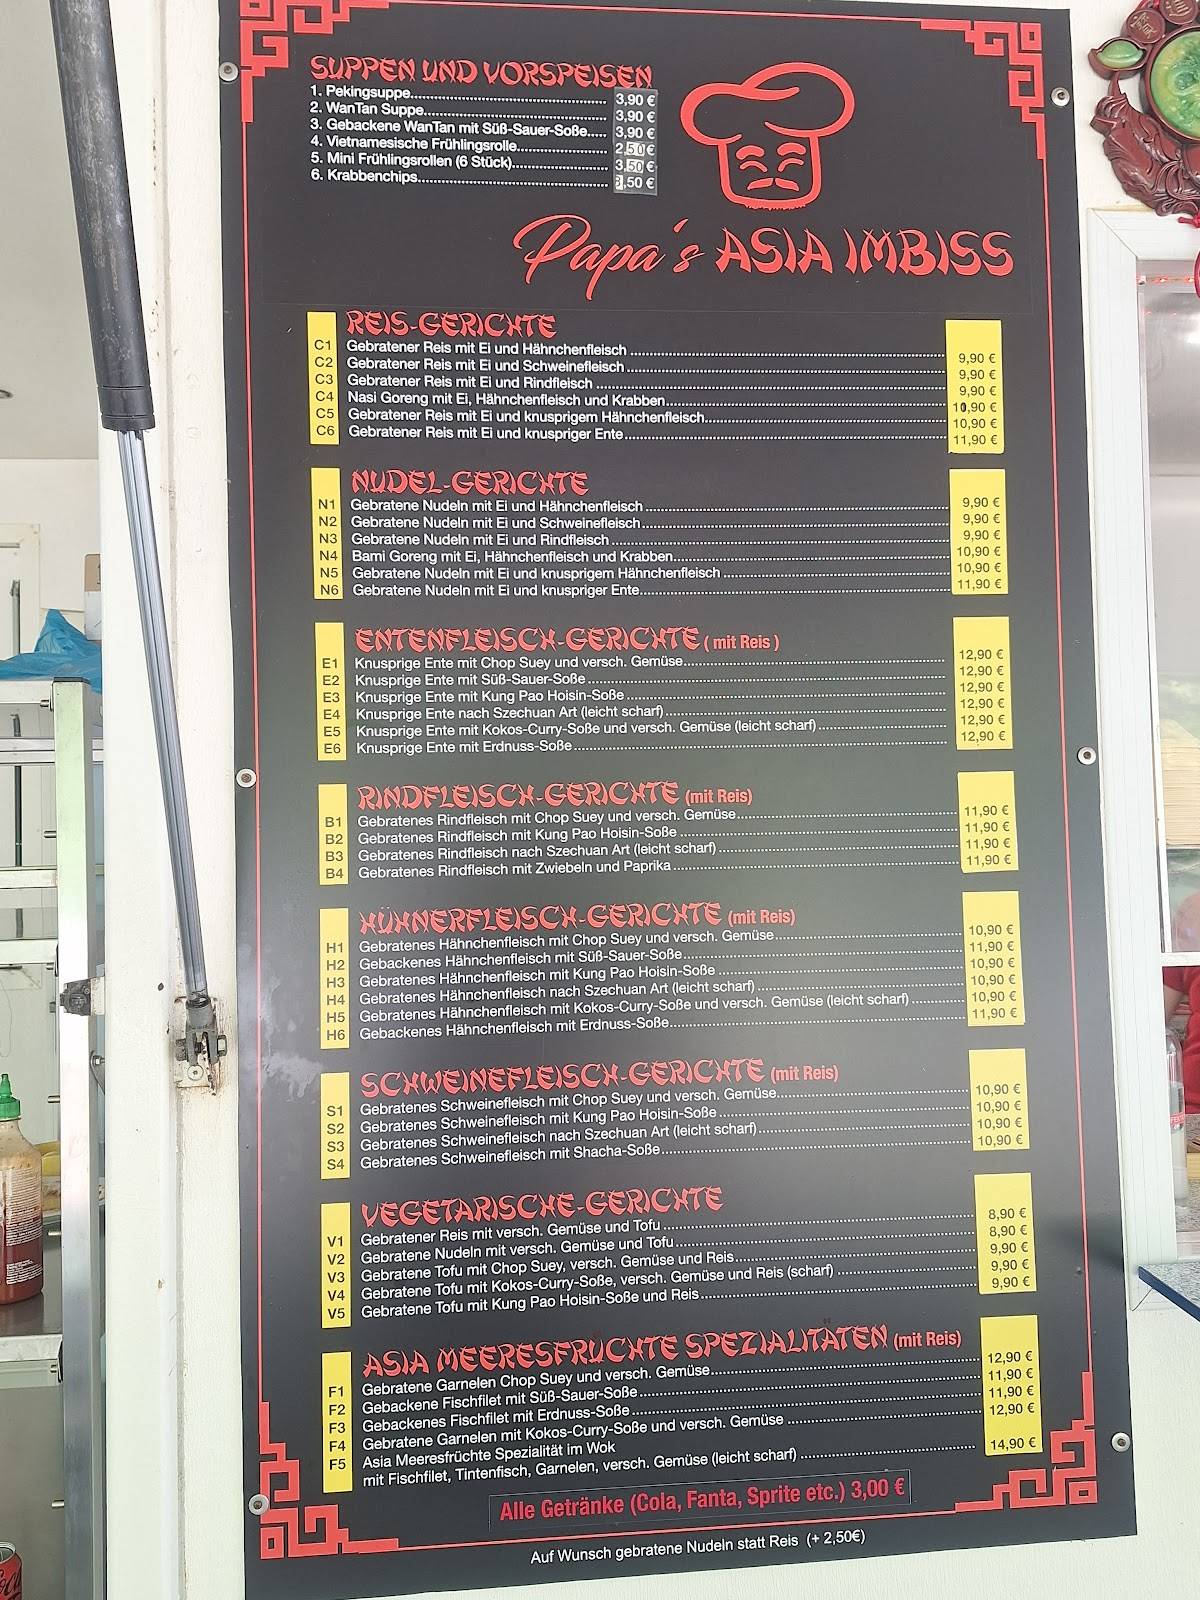 SUPPEN UND VORSPEISEN
1. Pekingsuppe 3,90 €
2. WanTan Suppe 3,90 €
3. Gebackene WanTan mit Süß-Sauer-Soße 3,90 €
4. Vietnamesische Frühlingsrolle 2,50 €
5. Mini Frühlingsrollen (6 Stück) 3,50 €
6. Krabbenchips 3,50 €
Papa's ASIA IMBISS
REIS-GERICHTE
C1 Gebratener Reis mit Ei und Hähnchenfleisch 9,90 €
C2 Gebratener Reis mit Ei und Schweinefleisch 9,90 €
C3 Gebratener Reis mit Ei und Rindfleisch 9,90 €
C4 Nasi Goreng mit Ei, Hähnchenfleisch und Krabben 10,90 €
C5 Gebratener Reis mit Ei und knusprigem Hähnchenfleisch 10,90 €
C6 Gebratener Reis mit Ei und knuspriger Ente 11,90 €
NUDEL-GERICHTE
N1 Gebratene Nudeln mit Ei und Hähnchenfleisch 9,90 €
N2 Gebratene Nudeln mit Ei und Schweinefleisch 9,90 €
N3 Gebratene Nudeln mit Ei und Rindfleisch 9,90 €
N4 Bami Goreng mit Ei, Hähnchenfleisch und Krabben 10,90 €
N5 Gebratene Nudeln mit Ei und knusprigem Hähnchenfleisch 10,90 €
N6 Gebratene Nudeln mit Ei und knuspriger Ente 11,90 €
ENTENFLEISCH-GERICHTE ( mit Reis )
E1 Knusprige Ente mit Chop Suey und versch. Gemüse 12,90 €
E2 Knusprige Ente mit Süß-Sauer-Soße 12,90 €
E3 Knusprige Ente mit Kung Pao Hoisin-Soße 12,90 €
E4 Knusprige Ente nach Szechuan Art (leicht scharf) 12,90 €
E5 Knusprige Ente mit Kokos-Curry-Soße und versch. Gemüse (leicht scharf) 12,90 €
E6 Knusprige Ente mit Erdnuss-Soße 12,90 €
RINDFLEISCH-GERICHTE (mit Reis)
B1 Gebratenes Rindfleisch mit Chop Suey und versch. Gemüse 11,90 €
B2 Gebratenes Rindfleisch mit Kung Pao Hoisin-Soße 11,90 €
B3 Gebratenes Rindfleisch nach Szechuan Art (leicht scharf) 11,90 €
B4 Gebratenes Rindfleisch mit Zwiebeln und Paprika 11,90 €
HÜHNERFLEISCH-GERICHTE (mit Reis)
H1 Gebratenes Hähnchenfleisch mit Chop Suey und versch. Gemüse 10,90 €
H2 Gebackenes Hähnchenfleisch mit Süß-Sauer-Soße 11,90 €
H3 Gebratenes Hähnchenfleisch mit Kung Pao Hoisin-Soße 10,90 €
H4 Gebratenes Hähnchenfleisch nach Szechuan Art (leicht scharf) 10,90 €
H5 Gebratenes Hähnchenfleisch mit Kokos-Curry-Soße und versch. Gemüse (leicht scharf) 10,90 €
H6 Gebackenes Hähnchenfleisch mit Erdnuss-Soße 11,90 €
SCHWEINEFLEISCH-GERICHTE (mit Reis)
S1 Gebratenes Schweinefleisch mit Chop Suey und versch. Gemüse 10,90 €
S2 Gebratenes Schweinefleisch mit Kung Pao Hoisin-Soße 10,90 €
S3 Gebratenes Schweinefleisch nach Szechuan Art (leicht scharf) 10,90 €
S4 Gebratenes Schweinefleisch mit Shacha-Soße 10,90 €
VEGETARISCHE-GERICHTE
V1 Gebratener Reis mit versch. Gemüse und Tofu 8,90 €
V2 Gebratene Nudeln mit versch. Gemüse und Tofu 8,90 €
V3 Gebratene Tofu mit Chop Suey, versch. Gemüse und Reis 9,90 €
V4 Gebratene Tofu mit Kokos-Curry-Soße, versch. Gemüse und Reis (scharf) 9,90 €
V5 Gebratene Tofu mit Kung Pao Hoisin-Soße und Reis 9,90 €
ASIA MEERESFRÜCHTE SPEZIALITÄTEN (mit Reis)
F1 Gebratene Garnelen Chop Suey und versch. Gemüse 12,90 €
F2 Gebackene Fischfilet mit Süß-Sauer-Soße 11,90 €
F3 Gebackenes Fischfilet mit Erdnuss-Soße 11,90 €
F4 Gebratene Garnelen mit Kokos-Curry-Soße und versch. Gemüse 12,90 €
F5 Asia Meeresfrüchte Spezialität im Wok
mit Fischfilet, Tintenfisch, Garnelen, versch. Gemüse (leicht scharf) 14,90 €
Alle Getränke (Cola, Fanta, Sprite etc.) 3,00 €
Auf Wunsch gebratene Nudeln statt Reis (+ 2,50€)